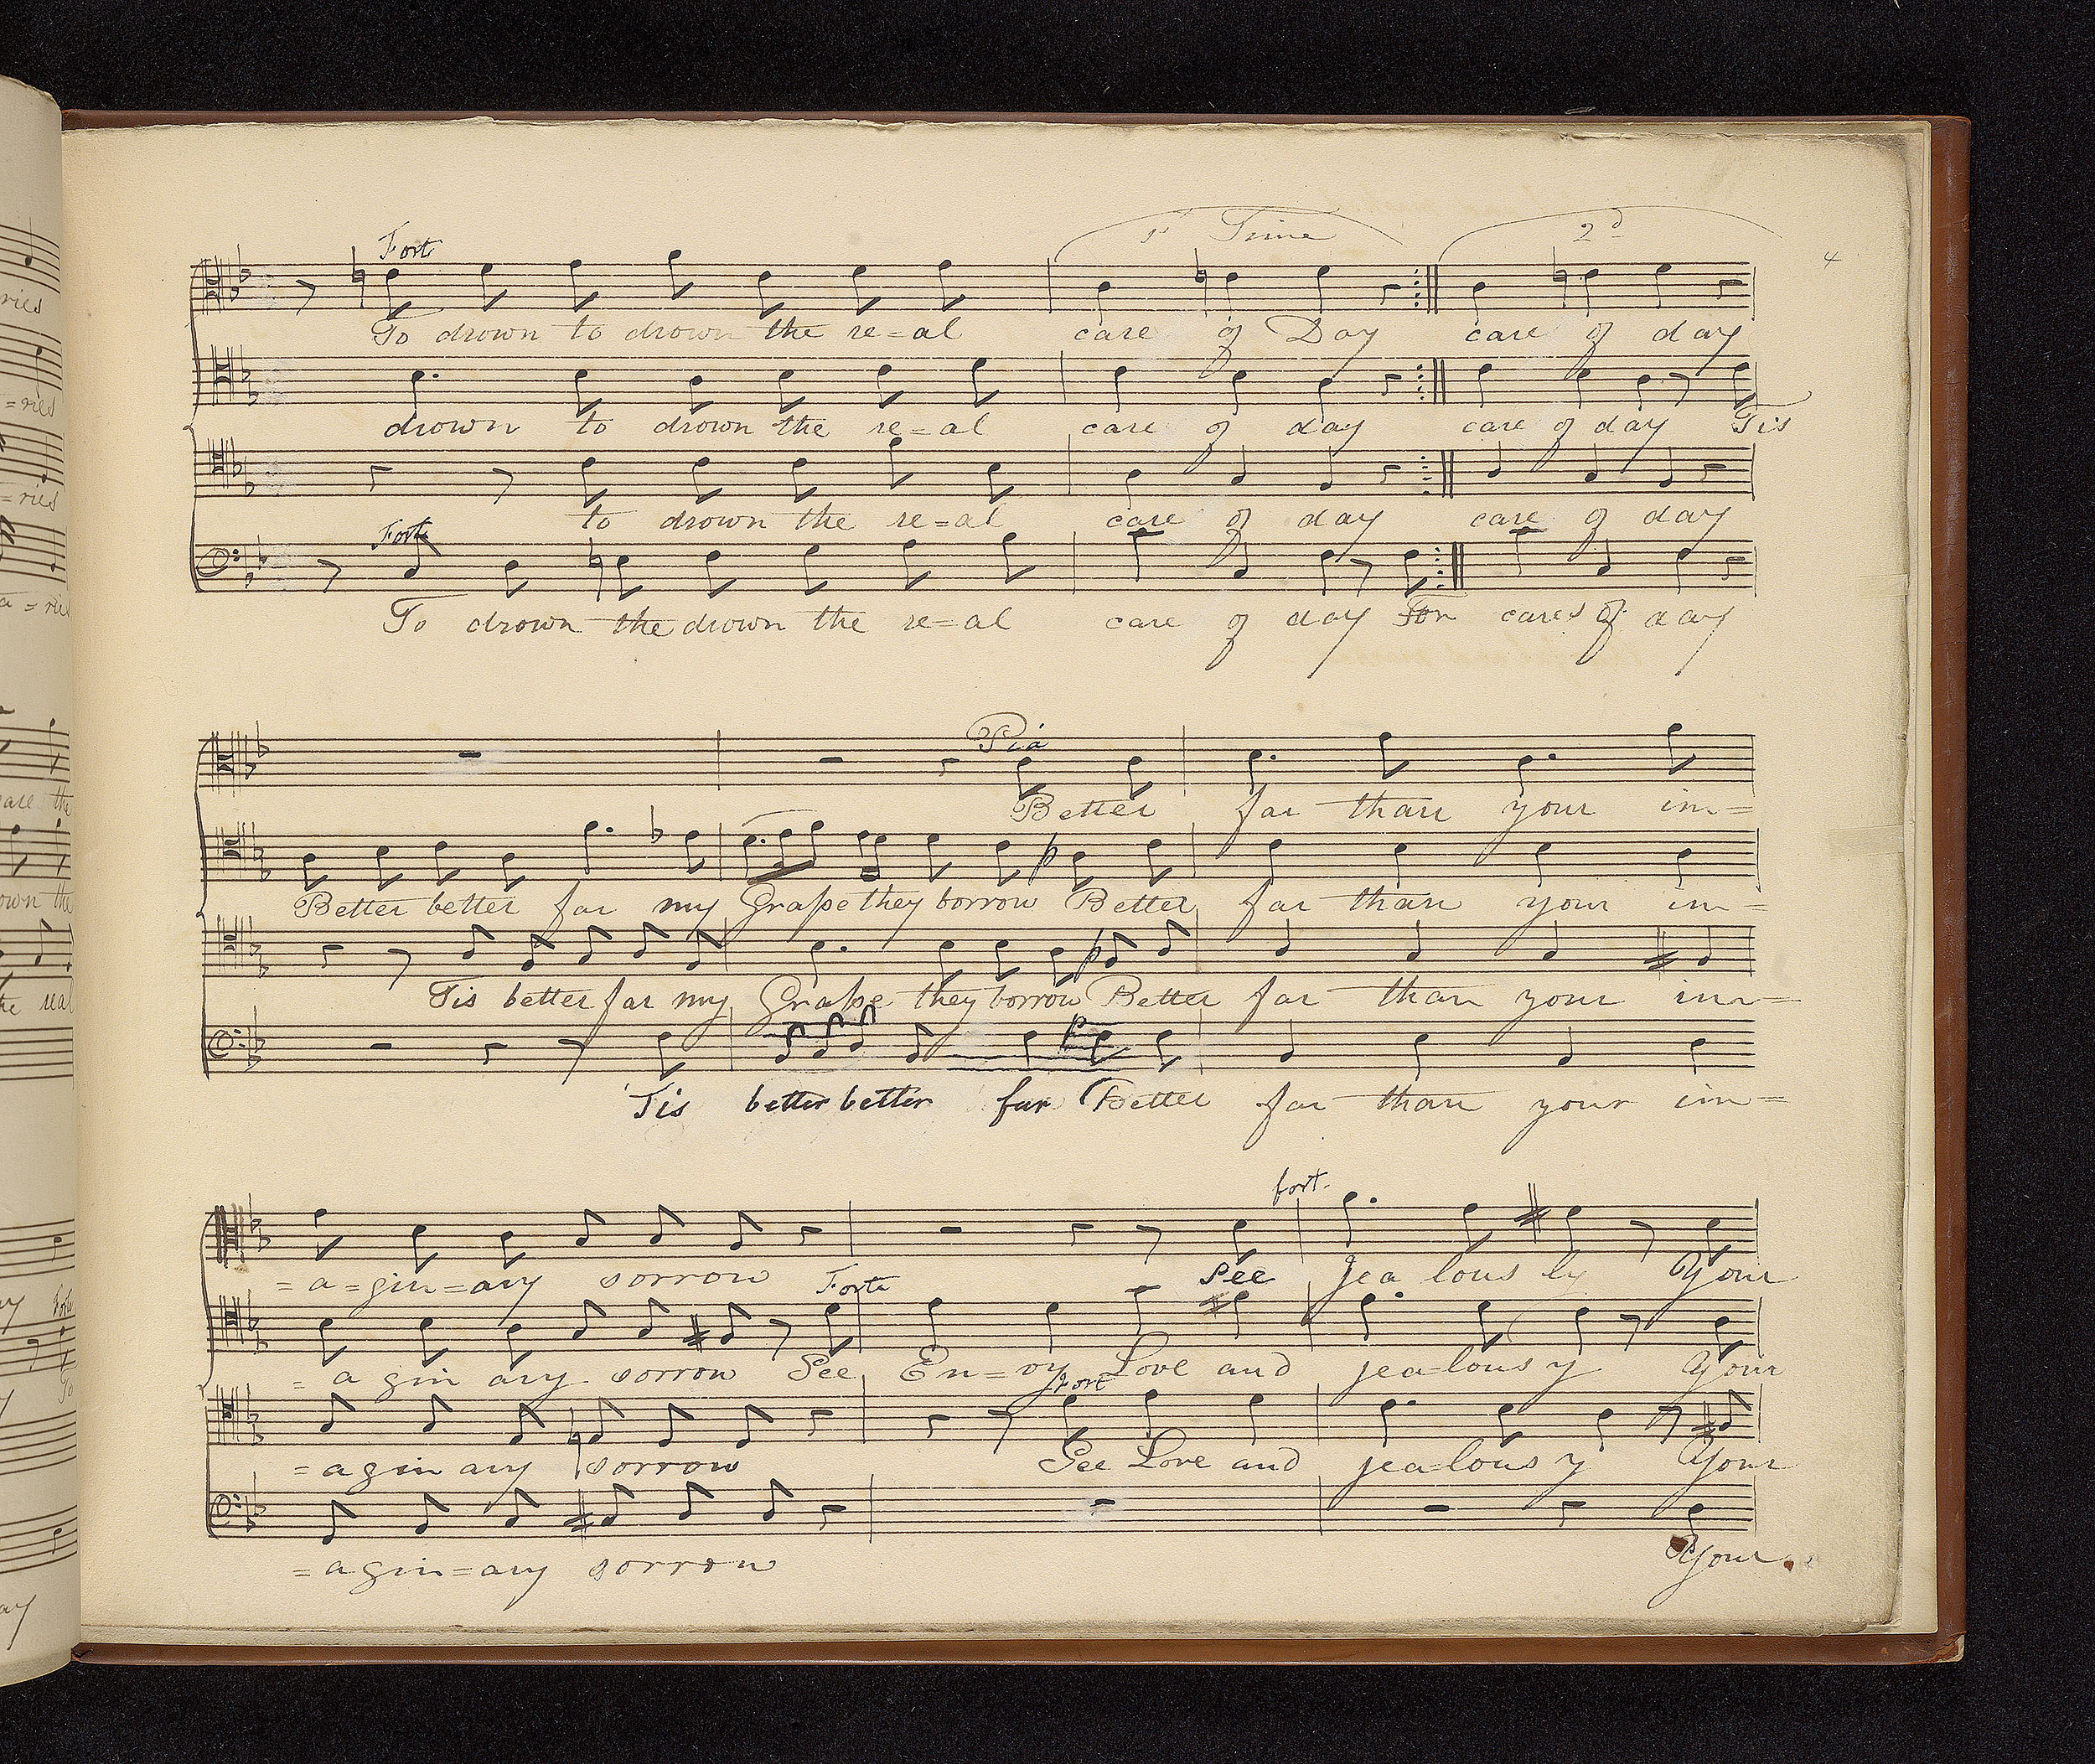 1st Time 2d
Fort
4
To drown to drown the re=al care of Day care of day
drown to drown the re=al care of day care of day Tis
to drown the re=al care of day care of day
Forte
To drown the drown the re=al care of day For cares of day
Pia
Better far than your im=
Better better far my Grape they borrow Better far than your im=
Tis better far my Grape they borrow Better far than your im=
Tis better better far Better far than your im=
fort.
=a=gin=ary sorrow See Jea lous ly Your
Forte
= a gin ary sorrow See En=vy Love and jea=lous y Your
Fort
=agin ary sorrow See Love and jea=lous y Your
=agin=ary sorrow Your